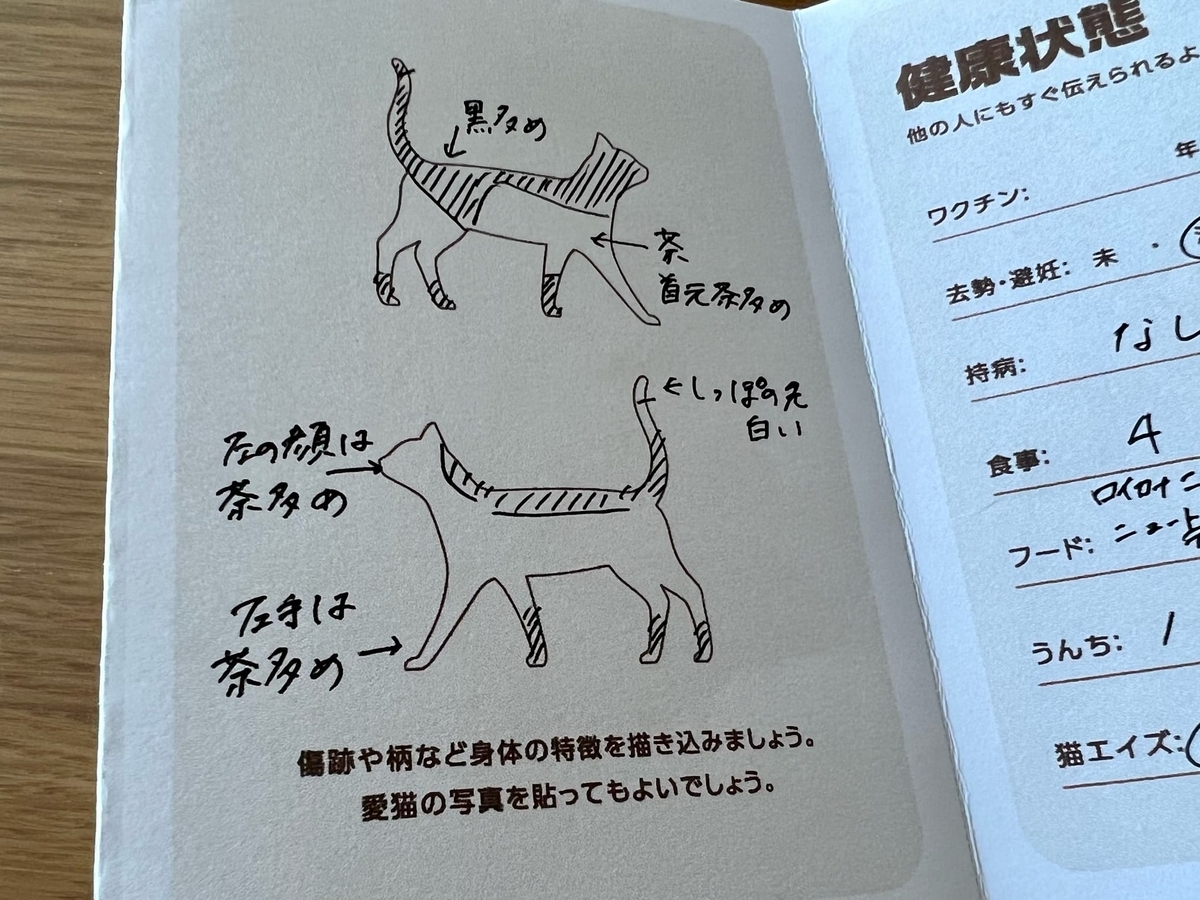 黒多め
茶
首元茶多め
←しっぽの先
白い
左の顔は
茶多め
左手は
茶多め
傷跡や柄など身体の特徴を描き込みましょう。
愛猫の写真を貼ってもよいでしょう。
健康状態
他の人にもすぐ伝えられるよ
年
ワクチン:
去勢・避妊: 未 ・
持病: なし
食事: 4
フード:
うんち: 1
猫エイズ: